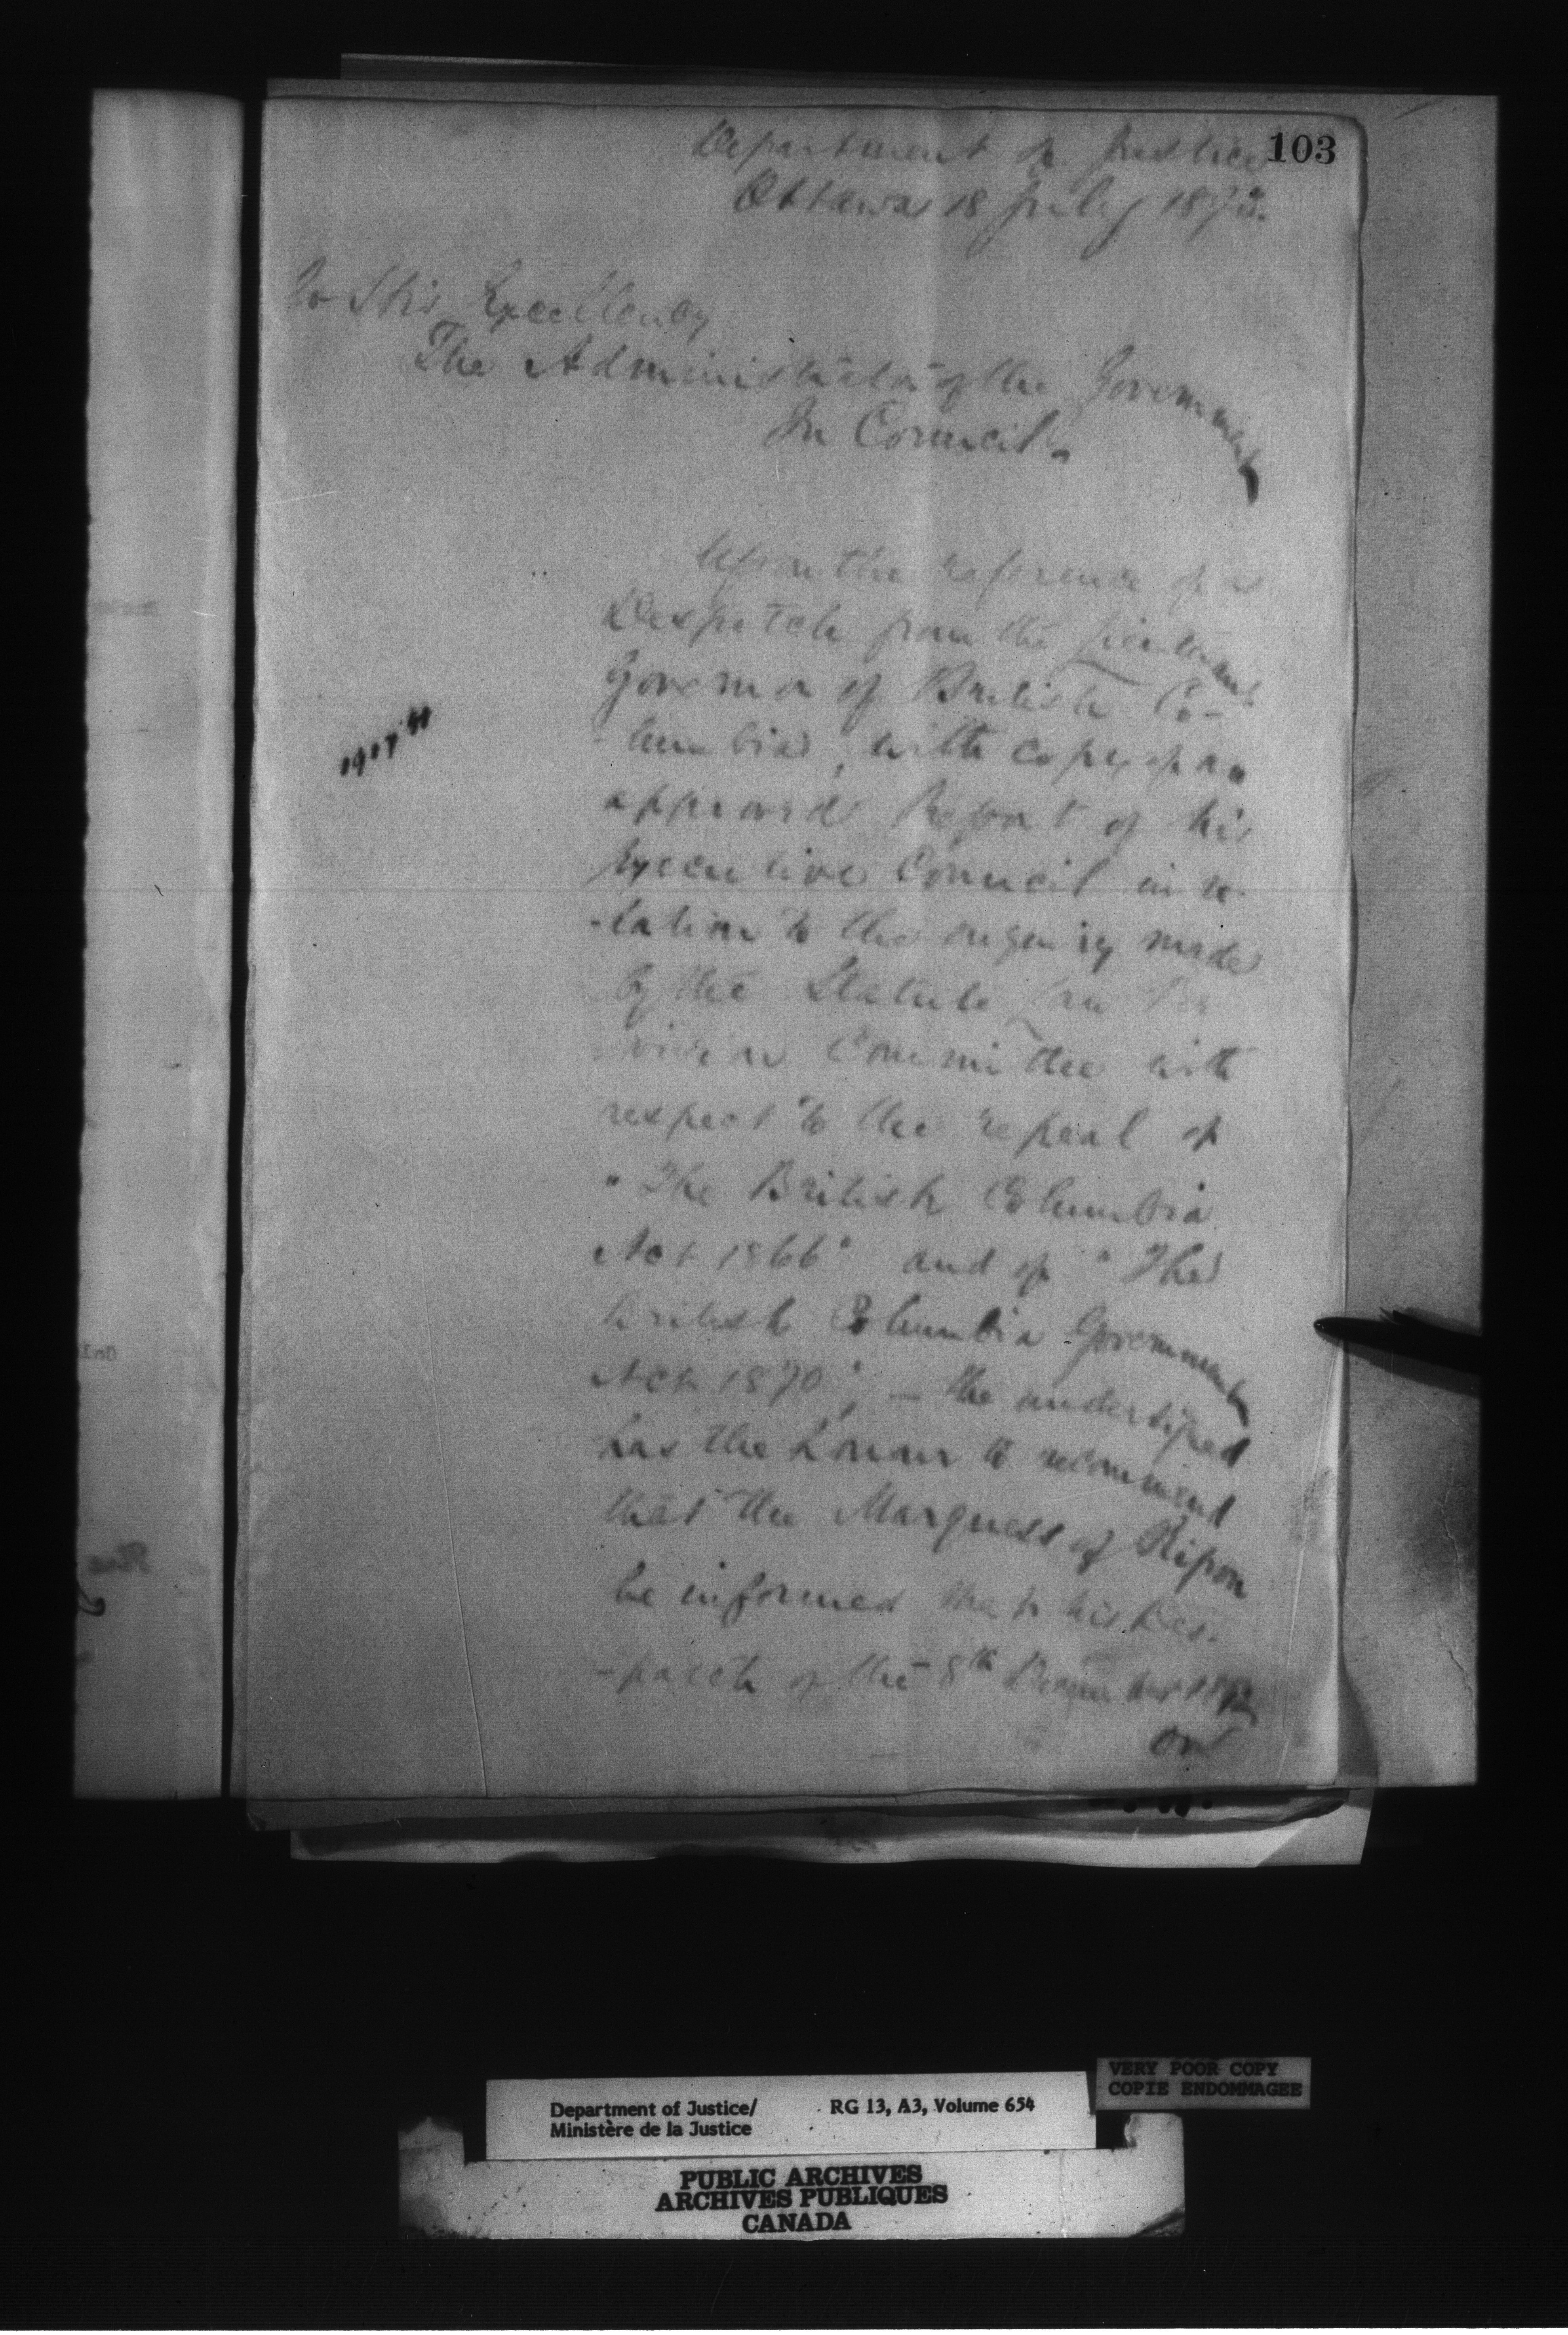 103
Department of Justice
Ottawa 18 July 1893.
To His Excellency
The Administrator of the Government
In Council.
Upon the reference of a
Despatch from the Lieutenant
Governor of British Co-
-lumbia, with copy of an
approved Report of his
Executive Council in re-
-lation to the enquiry made
by the Statute Law Re
vision Committee with
respect to the repeal of
"The British Columbia
Act 1866" and of "The
British Columbia Government
Act 1870", — the undersigned
has the honour to recommend
that the Marquess of Ripon
be informed that his Des-
-patch of the 8th December 1892
on
VERY POOR COPY
COPIE ENDOMMAGEE
Department of Justice/ RG 13, A3, Volume 654
Ministère de la Justice
PUBLIC ARCHIVES
ARCHIVES PUBLIQUES
CANADA